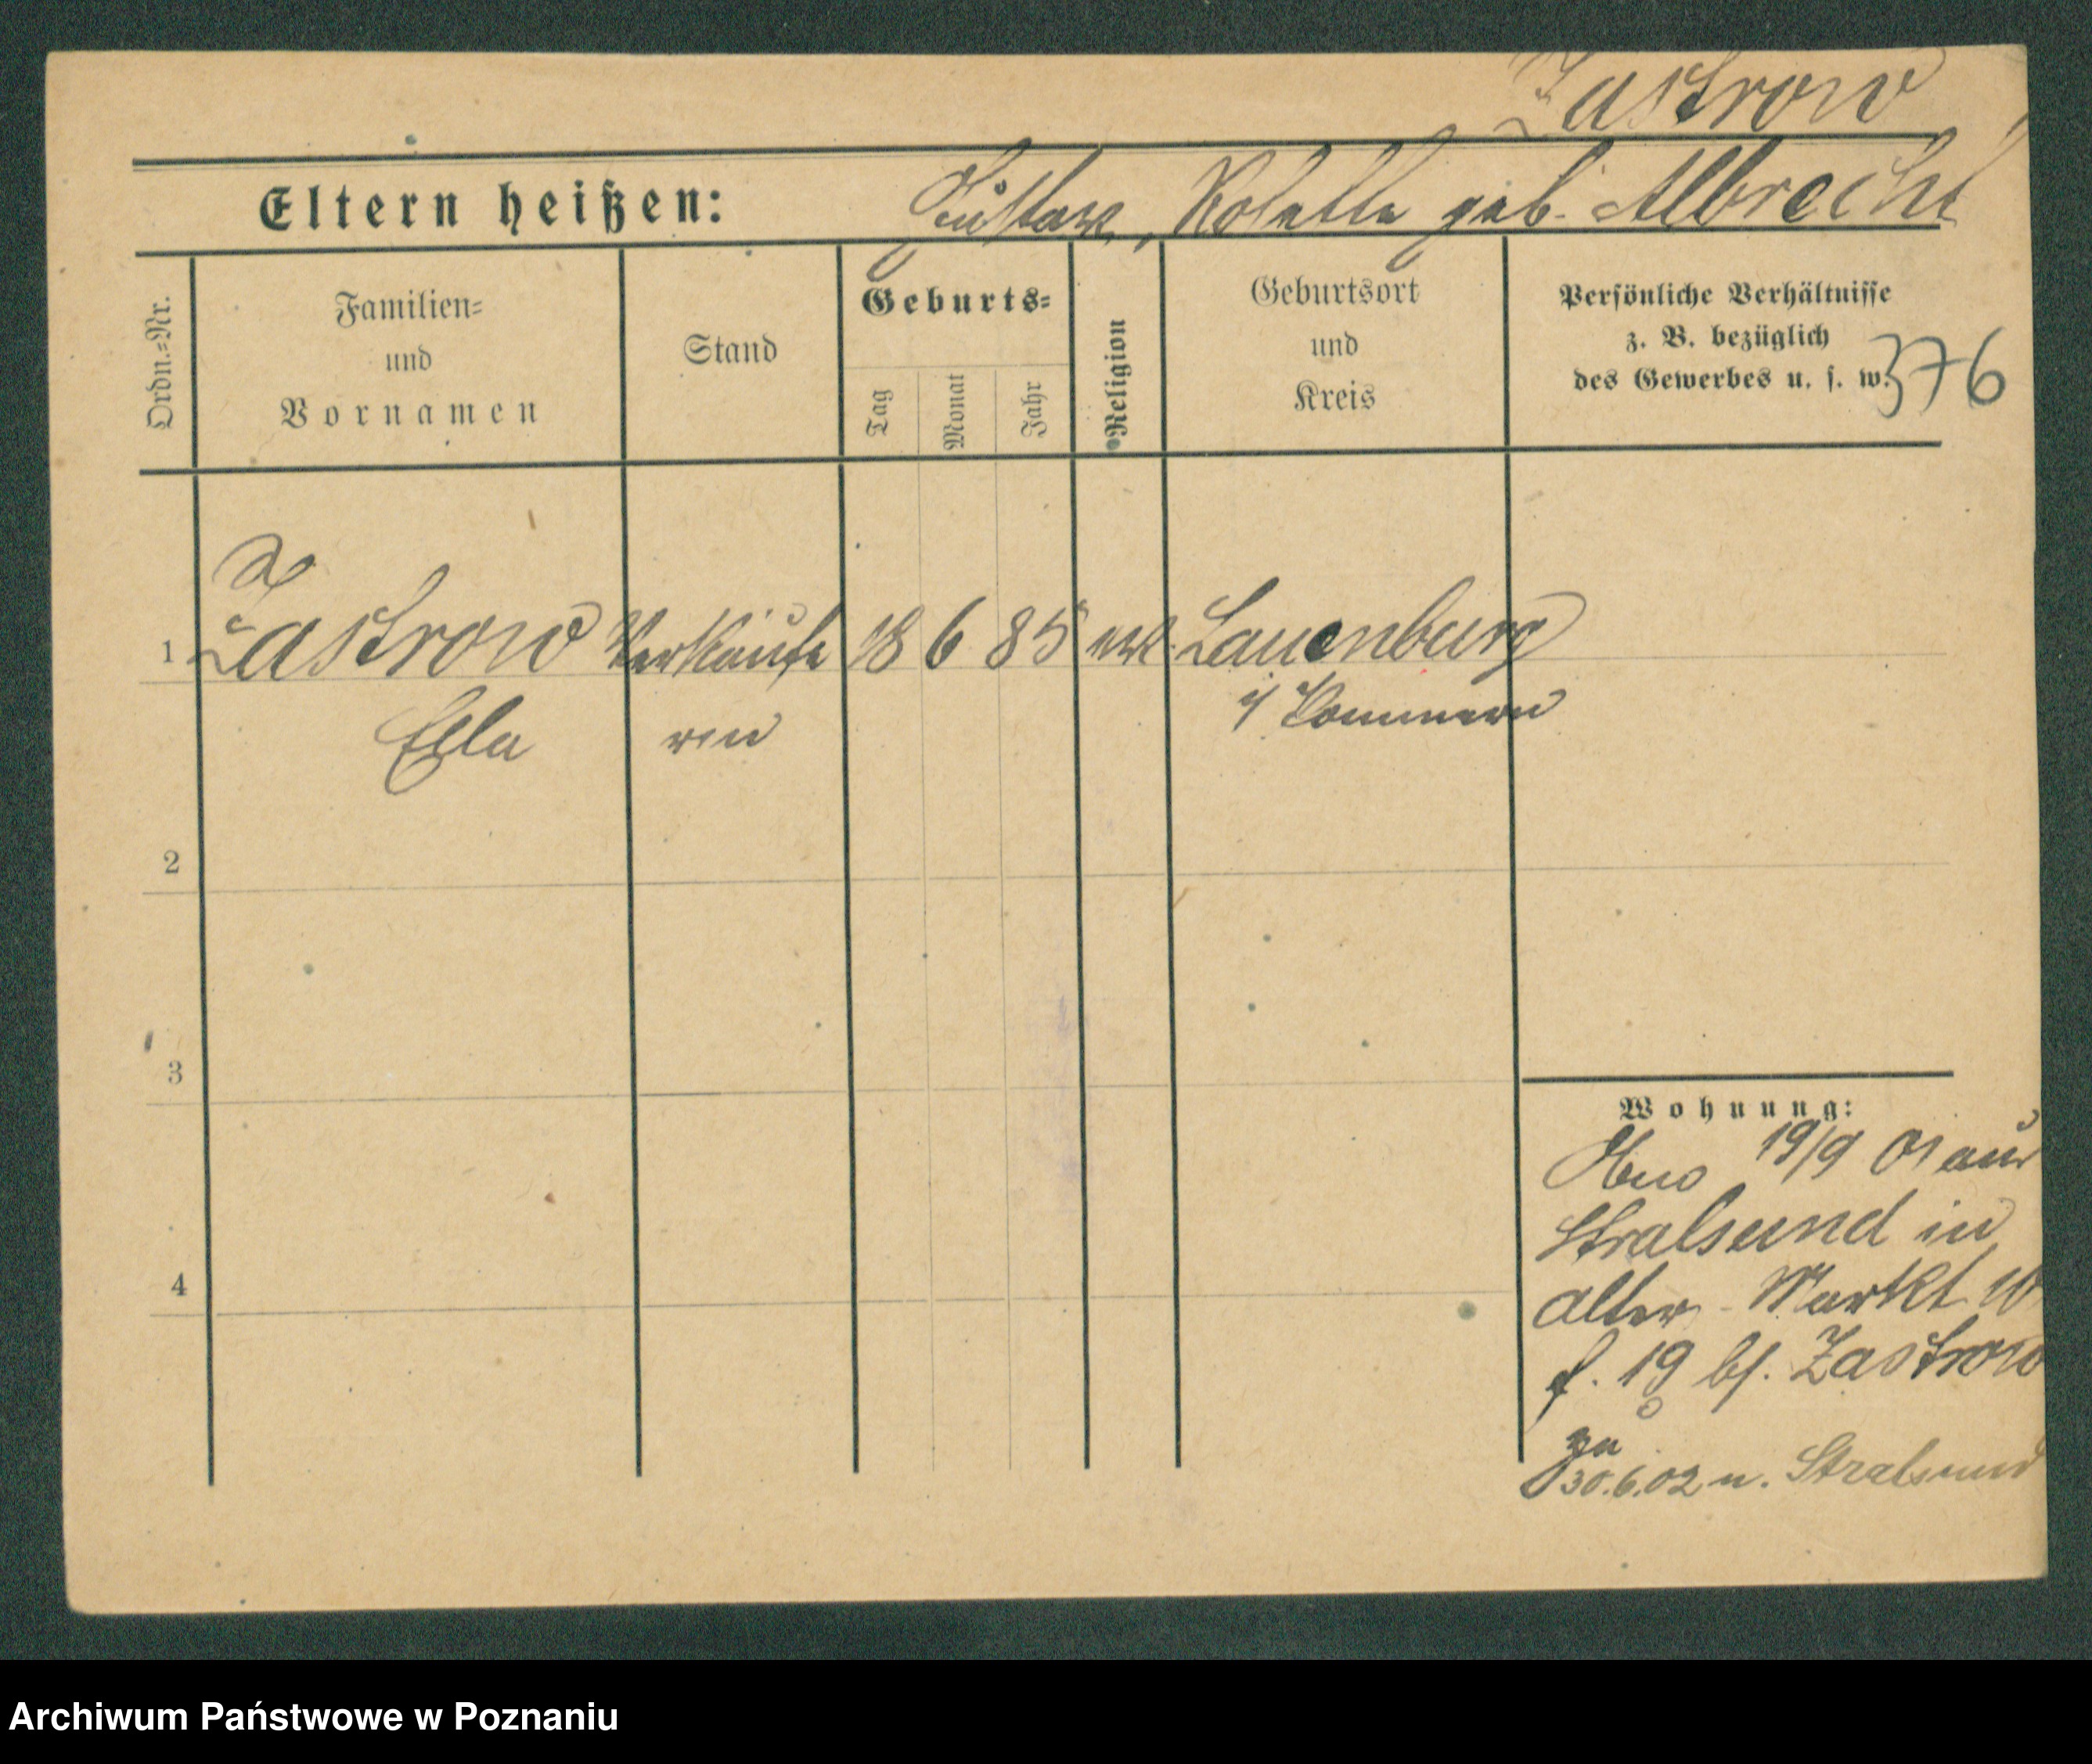 Zastrow
Eltern heißen: Gustav, Rosette geb. Albrecht
Ordn.=Nr.
Familien=
und
Vornamen
Stand
Geburts=
Tag
Monat
Jahr
Religion
Geburtsort
und
Kreis
Persönliche Verhältnisse
z. B. bezüglich
des Gewerbes u. s. w.
376
1 Zastrow Verkäufe 18 6 85 evl. Lauenburg
Ella rin i/ Pommern
2
3
4
Wohnung:
19/9 01 aus
Stralsund in
Alter Markt 10
f. 19 bs. Zastrow
zu
30.6.02 n. Stralsund
Archiwum Państwowe w Poznaniu